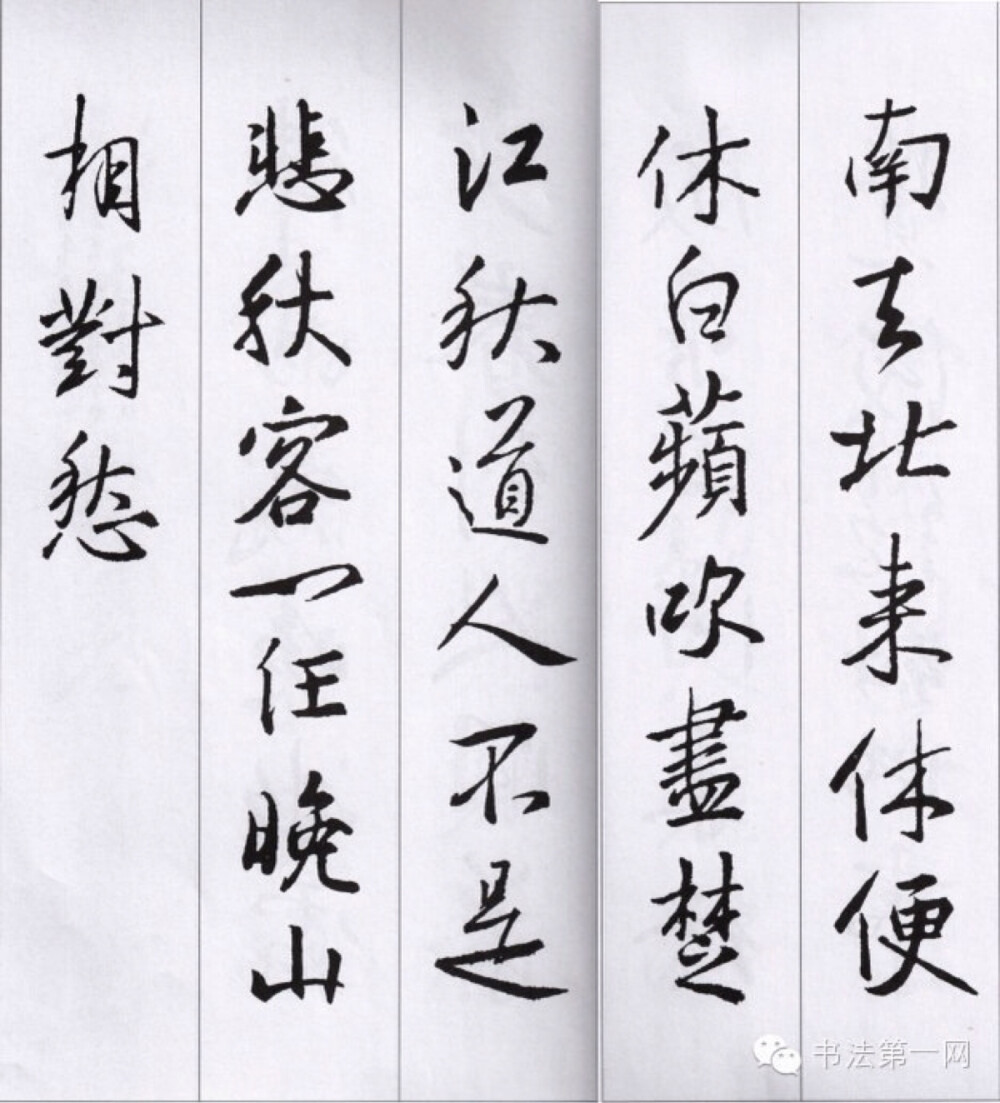 南去北来休便
休白蘋吹盡楚
江秋道人不是
悲秋客一任晚山
相對愁
书法第一网